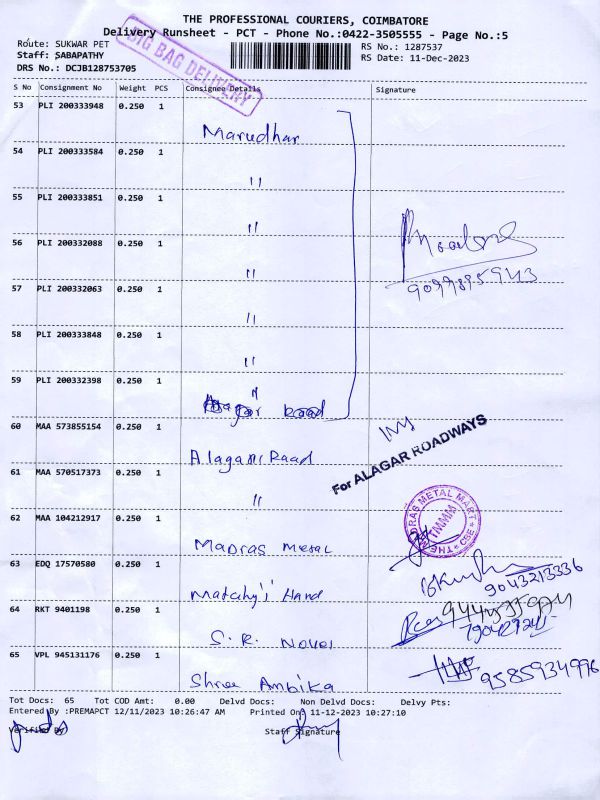 THE PROFESSIONAL COURIERS, COIMBATORE
Delivery Runsheet - PCT - Phone No.:0422-3505555 - Page No.:5
Route: SUKWAR PET
RS No.: 1287537
Staff: SABAPATHY
RS Date: 11-Dec-2023
DRS No.: DCJB128753705
BIG BAG DELIVERY
S No Consignment No Weight PCS Consignee Details Signature
53 PLI 200333948 0.250 1
Marudhar
54 PLI 200333584 0.250 1
"
55 PLI 200333851 0.250 1
"
56 PLI 200332088 0.250 1
"
57 PLI 200332063 0.250 1
"
58 PLI 200333848 0.250 1
"
59 PLI 200332398 0.250 1
"
60 MAA 573855154 0.250 1
For ALAGAR ROADWAYS
61 MAA 570517373 0.250 1
"
62 MAA 104212917 0.250 1
THE MADRAS METAL MART
TMMM
CBE
Madras Metal
63 EDQ 17570580 0.250 1
9043213336
64 RKT 9401198 0.250 1
S. R. Novel
65 VPL 945131176 0.250 1
9585934996
Shree Ambika
Tot Docs: 65 Tot COD Amt: 0.00 Delvd Docs: Non Delvd Docs: Delvy Pts:
Entered By :PREMAPCT 12/11/2023 10:26:47 AM Printed On: 11-12-2023 10:27:10
Verified By
Staff Signature